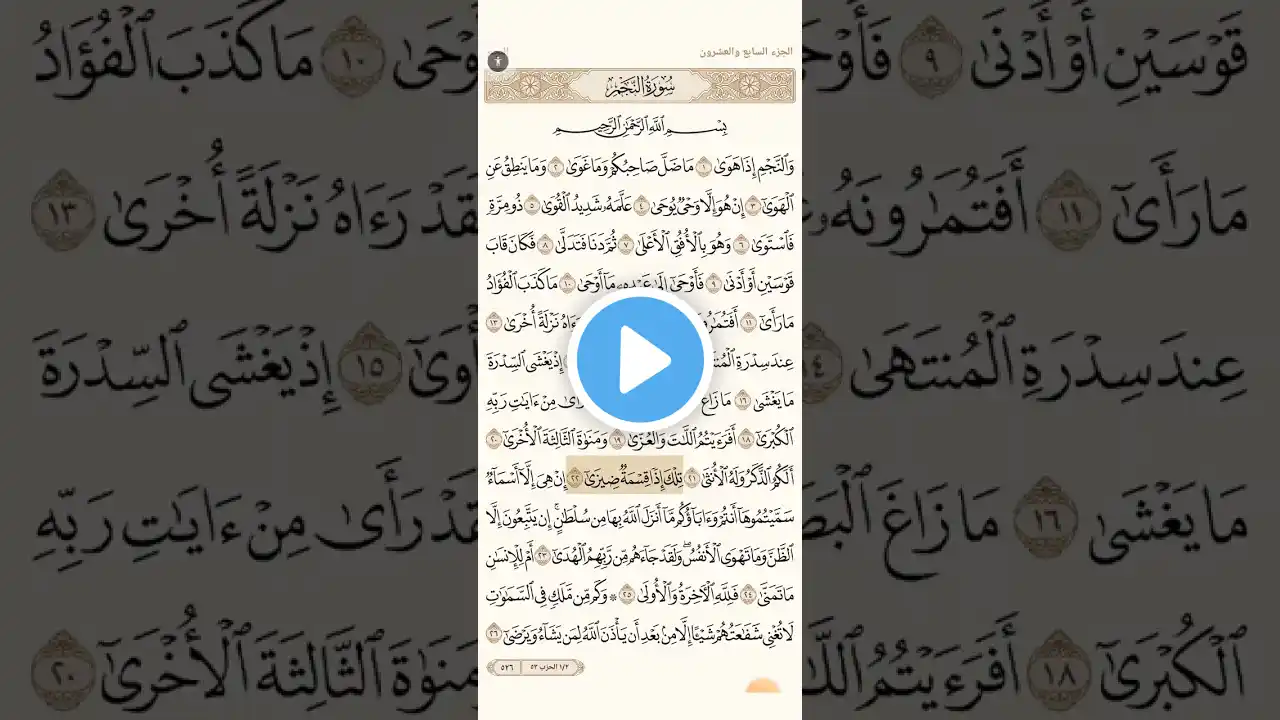 الجزء السابع والعشرون
سُورَةُ النَّجْمِ
بِسْمِ اللَّهِ الرَّحْمَٰنِ الرَّحِيمِ
وَٱلنَّجْمِ إِذَا هَوَىٰ ١ مَا ضَلَّ صَاحِبُكُمْ وَمَا غَوَىٰ ٢ وَمَا يَنطِقُ عَنِ
ٱلْهَوَىٰٓ ٣ إِنْ هُوَ إِلَّا وَحْىٌ يُوحَىٰ ٤ عَلَّمَهُۥ شَدِيدُ ٱلْقُوَىٰ ٥ ذُو مِرَّةٍ
فَٱسْتَوَىٰ ٦ وَهُوَ بِٱلْأُفُقِ ٱلْأَعْلَىٰ ٧ ثُمَّ دَنَا فَتَدَلَّىٰ ٨ فَكَانَ قَابَ
قَوْسَيْنِ أَوْ أَدْنَىٰ ٩ فَأَوْحَىٰٓ إِلَىٰ عَبْدِهِۦ مَآ أَوْحَىٰ ١٠ مَا كَذَبَ ٱلْفُؤَادُ
مَا رَأَىٰٓ ١١ نَزْلَةً أُخْرَىٰ ١٣
عِندَ سِدْرَةِ إِذْ يَغْشَى ٱلسِّدْرَةَ
مَا يَغْشَىٰ ١٦ مَا زَاغَ مِنْ ءَايَٰتِ رَبِّهِ
ٱلْكُبْرَىٰٓ ١٨ أَفَرَءَيْتُمُ ٱللَّٰتَ وَٱلْعُزَّىٰ ١٩ وَمَنَوٰةَ ٱلثَّالِثَةَ ٱلْأُخْرَىٰٓ ٢٠
أَلَكُمُ ٱلذَّكَرُ وَلَهُ ٱلْأُنثَىٰ ٢١ تِلْكَ إِذًا قِسْمَةٌ ضِيزَىٰٓ ٢٢ إِنْ هِىَ إِلَّآ أَسْمَآءٌ
سَمَّيْتُمُوهَآ أَنتُمْ وَءَابَآؤُكُم مَّآ أَنزَلَ ٱللَّهُ بِهَا مِن سُلْطَٰنٍ ۚ إِن يَتَّبِعُونَ إِلَّا
ٱلظَّنَّ وَمَا تَهْوَى ٱلْأَنفُسُ ۖ وَلَقَدْ جَآءَهُم مِّن رَّبِّهِمُ ٱلْهُدَىٰٓ ٢٣ أَمْ لِلْإِنسَٰنِ
مَا تَمَنَّىٰ ٢٤ فَلِلَّهِ ٱلْءَاخِرَةُ وَٱلْأُولَىٰ ٢٥ ۞ وَكَم مِّن مَّلَكٍ فِى ٱلسَّمَٰوَٰتِ
لَا تُغْنِى شَفَٰعَتُهُمْ شَيْـًٔا إِلَّا مِنۢ بَعْدِ أَن يَأْذَنَ ٱللَّهُ لِمَن يَشَآءُ وَيَرْضَىٰٓ ٢٦
١/٢ الحزب ٥٣
٥٢٦